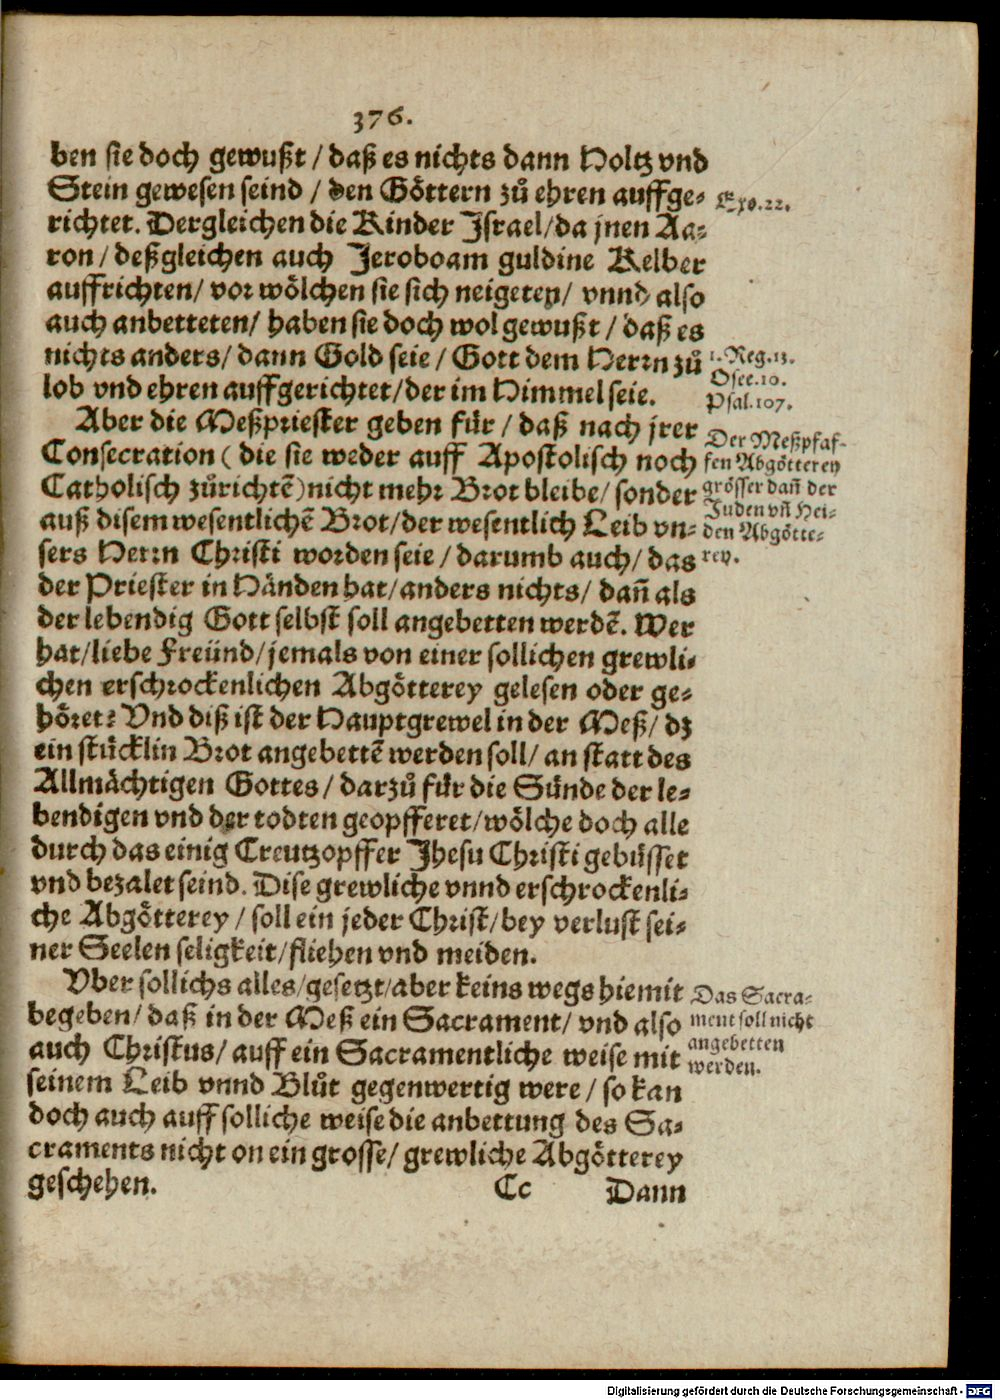 376.
ben sie doch gewußt / daß es nichts dann Holtz vnd
Stein gewesen seind / den Göttern zů ehren auffge-
Exo.22.
richtet. Dergleichen die Kinder Israel/da jnen Aa-
ron / deßgleichen auch Jeroboam guldine Kelber
auffrichten/ vor wölchen sie sich neigeten/ vnnd also
auch anbetteten/ haben sie doch wol gewußt / daß es
nichts anders/ dann Gold seie / Gott dem Herrn zů
lob vnd ehren auffgerichtet/der im Himmel seie.
1.Reg.13.
Osee.10.
Psal.107.
Aber die Meßpriester geben für / daß nach jrer
Consecration ( die sie weder auff Apostolisch noch
Catholisch zůrichtē) nicht mehr Brot bleibe/ sonder
auß disem wesentlichē Brot/der wesentlich Leib vn-
sers Herrn Christi worden seie / darumb auch/ das
Der Meßpfaf-
fen Abgötterey
grösser dañ der
Juden vñ Hei-
den Abgötte-
rey.
der Priester in Händen hat/anders nichts/ dañ als
der lebendig Gott selbst soll angebetten werdē. Wer
hat/liebe Freünd/jemals von einer sollichen grewli-
chen erschrockenlichen Abgötterey gelesen oder ge-
höret? Vnd diß ist der Hauptgrewel in der Meß/ dz
ein stücklin Brot angebettē werden soll/ an statt des
Allmächtigen Gottes / darzů für die Sünde der le-
bendigen vnd der todten geopfferet/wölche doch alle
durch das einig Creutzopffer Jhesu Christi gebüsset
vnd bezalet seind. Dise grewliche vnnd erschrockenli-
che Abgötterey / soll ein jeder Christ/bey verlust sei-
ner Seelen seligkeit/fliehen vnd meiden.
Vber sollichs alles/gesetzt/aber keins wegs hiemit
begeben/ daß in der Meß ein Sacrament/ vnd also
auch Christus/ auff ein Sacramentliche weise mit
seinem Leib vnnd Blůt gegenwertig were / so kan
Das Sacra-
ment soll nicht
angebetten
werden.
doch auch auff solliche weise die anbettung des Sa-
craments nicht on ein grosse/ grewliche Abgötterey
geschehen.
Cc Dann
Digitalisierung gefördert durch die Deutsche Forschungsgemeinschaft - DFG